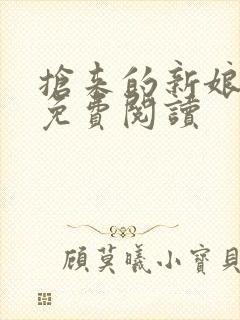 搶來的新娘
免費閱讀
顧莫曦小寶貝